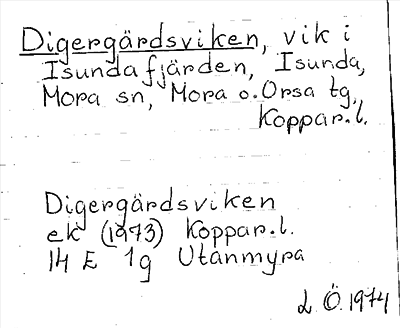 Digergärdsviken, vik i
Isundafjärden, Isunda,
Mora sn, Mora o. Orsa tg,
Koppar. l.
Digergärdsviken
ek (1973) Koppar. l.
14 E 1g Utanmyra
L. Ö. 1974